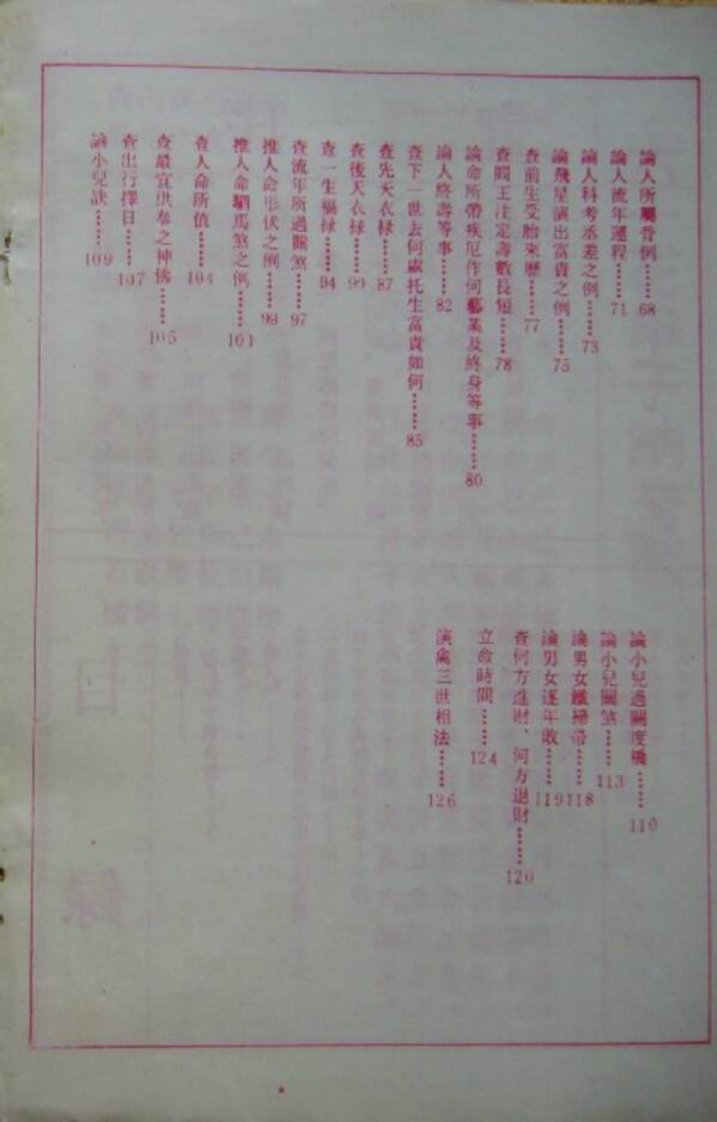 論人所屬骨例……68
論人流年運程……71
論人科考丞差之例……73
論飛星演出富貴之例……75
查前生受胎來歷……77
查閻王注定壽數長短……78
論命所帶疾厄作何藝業及終身等事……80
論人終壽等事……82
查下一世去何處托生富貴如何……85
查先天衣祿……87
查後天衣祿……90
查一生福祿……94
查流年所過關煞……97
推人命形伏之例……99
推人命驛馬煞之例……101
查人命所值……104
查最宜供奉之神佛……105
查出行擇日……107
論小兒訣……109
論小兒過關度橋……110
論小兒關煞……113
論男女鐵掃帚……118
論男女逐年敢……119
查何方進財,何方退財……120
立命時間……124
演禽三世相法……126
目錄